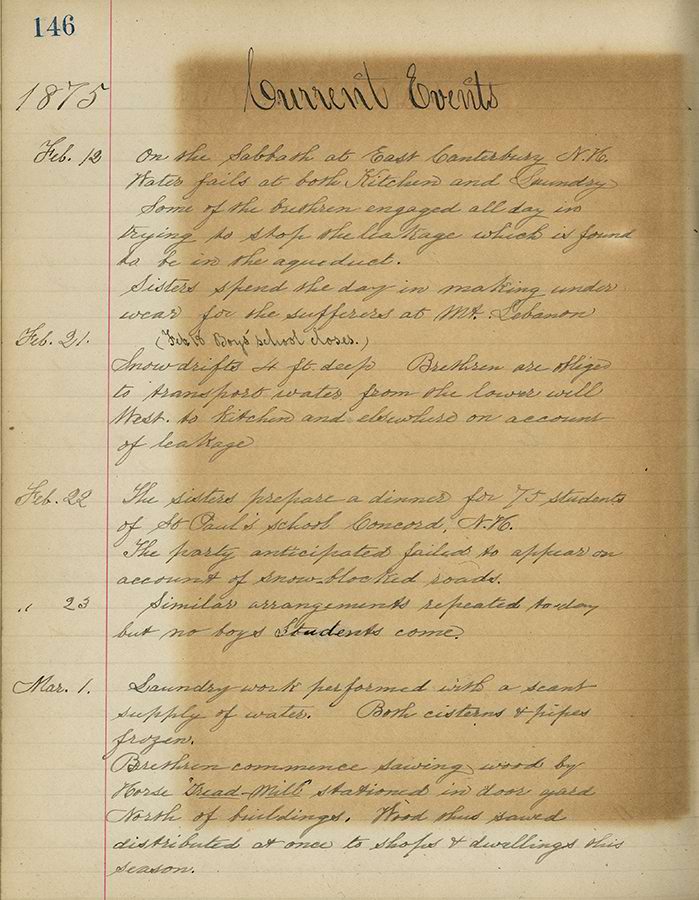 146
1875 Current Events
Feb. 12 On the Sabbath at East Canterbury N.H.
Water fails at both Kitchen and Laundry
Some of the brethren engaged all day in
trying to stop the leakage which is found
to be in the aqueduct.
Sisters spend the day in making under
wear for the sufferers at Mt. Lebanon
(Feb 18 Boys' school closes.)
Feb. 21. Snow drifts 4 ft. deep Brethren are obliged
to transport water from the lower well
West. to Kitchen and elsewhere on account
of leakage
Feb. 22 The sisters prepare a dinner for 75 students
of St Paul's school Concord, N.H.
The party anticipated failed to appear on
account of snow-blocked roads.
,, 23 Similar arrangements repeated to-day
but no boys Students come.
Mar. 1. Laundry work performed with a scant
supply of water. Both cisterns & pipes
frozen.
Brethren commence sawing wood by
Horse "Tread-Mill" stationed in door yard
North of buildings. Wood thus sawed
distributed at once to shops & dwellings this
season.